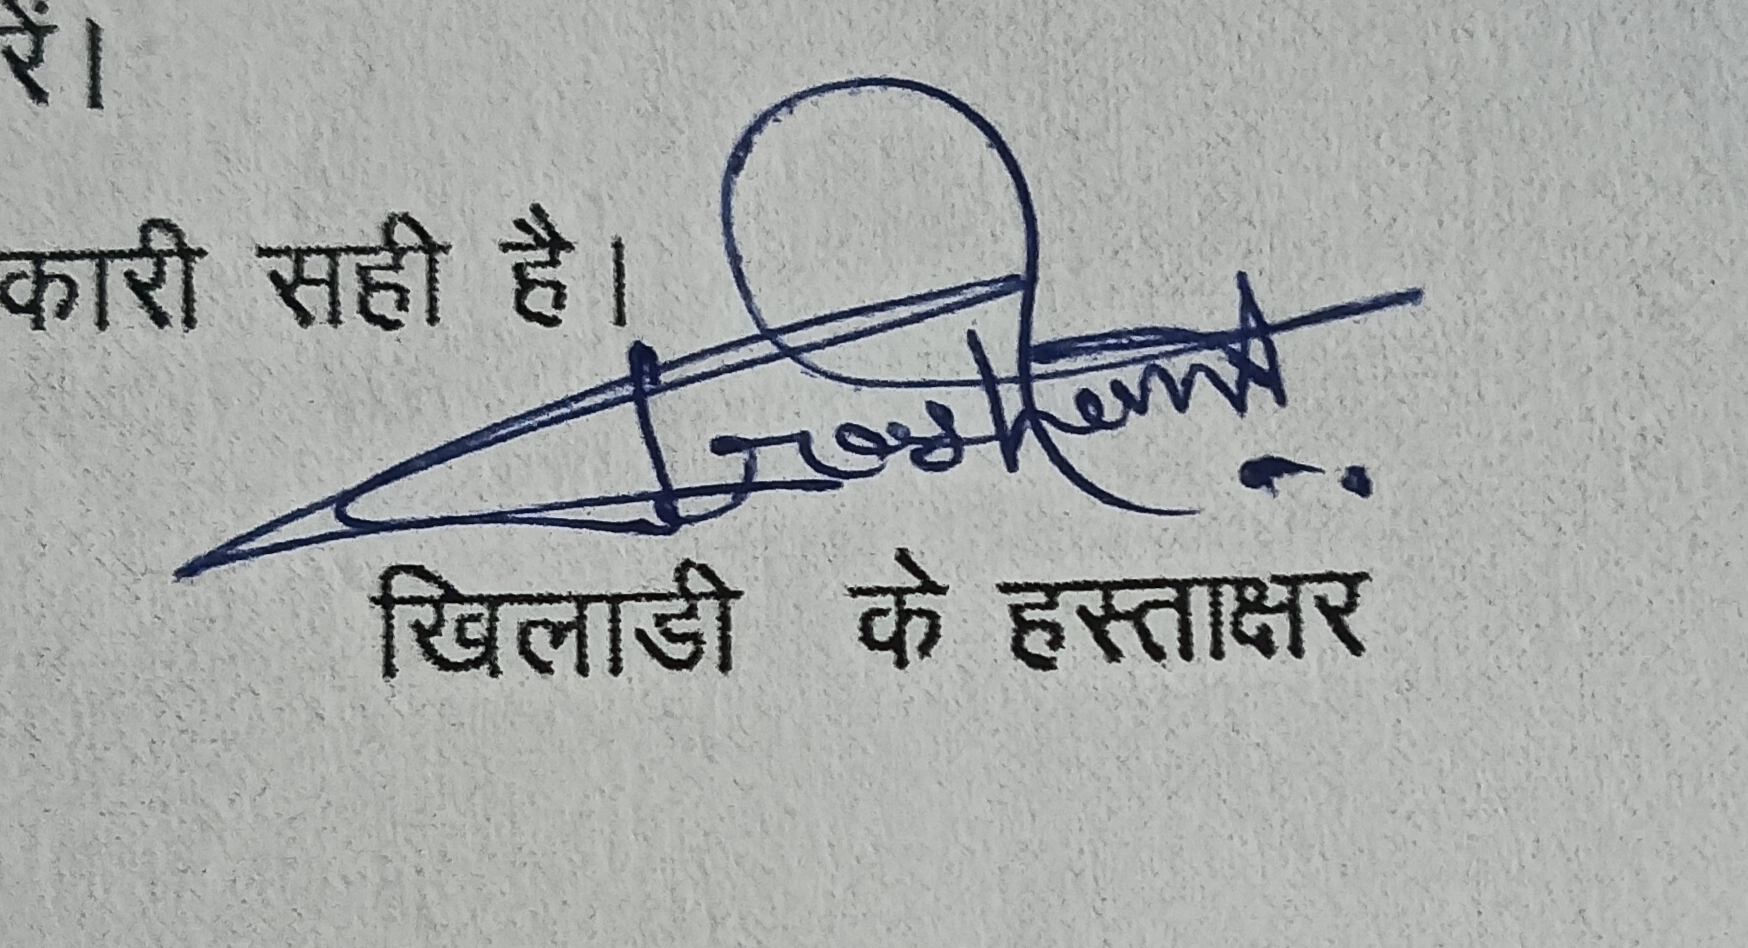 रें।
कारी सही है।
खिलाडी के हस्ताक्षर